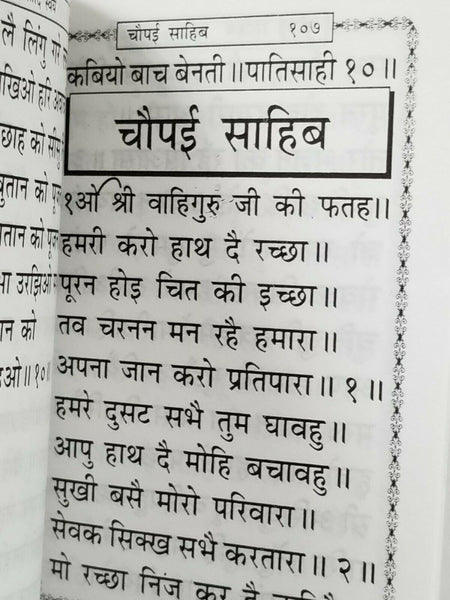 लै लिंगु
छाह को सीस
तान को
उरझिओ
को
चौपई साहिब १०७
कबियो बाच बेनती॥पातिसाही १०॥
चौपई साहिब
१ओ श्री वाहिगुरु जी की फतह॥
हमरी करो हाथ दै रच्छा॥
पूरन होइ चित की इच्छा॥
तव चरनन मन रहै हमारा॥
अपना जान करो प्रतिपारा॥ १॥
हमरे दुसट सभै तुम घावहु॥
आपु हाथ दै मोहि बचावहु॥
सुखी बसै मोरो परिवारा॥
सेवक सिक्ख सभै करतारा॥ २॥
मो रच्छा निंज कर दै